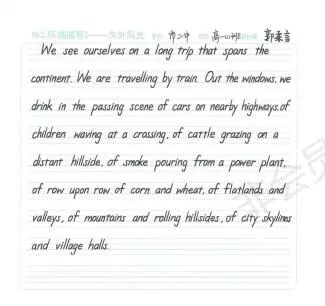 №1.环境描写1——车外风光 市二中 高一(4)班 郭秉言
We see ourselves on a long trip that spans the
continent. We are travelling by train. Out the windows, we
drink in the passing scene of cars on nearby highways, of
children waving at a crossing, of cattle grazing on a
distant hillside, of smoke pouring from a power plant,
of row upon row of corn and wheat, of flatlands and
valleys, of mountains and rolling hillsides, of city skylines
and village halls.
非会员